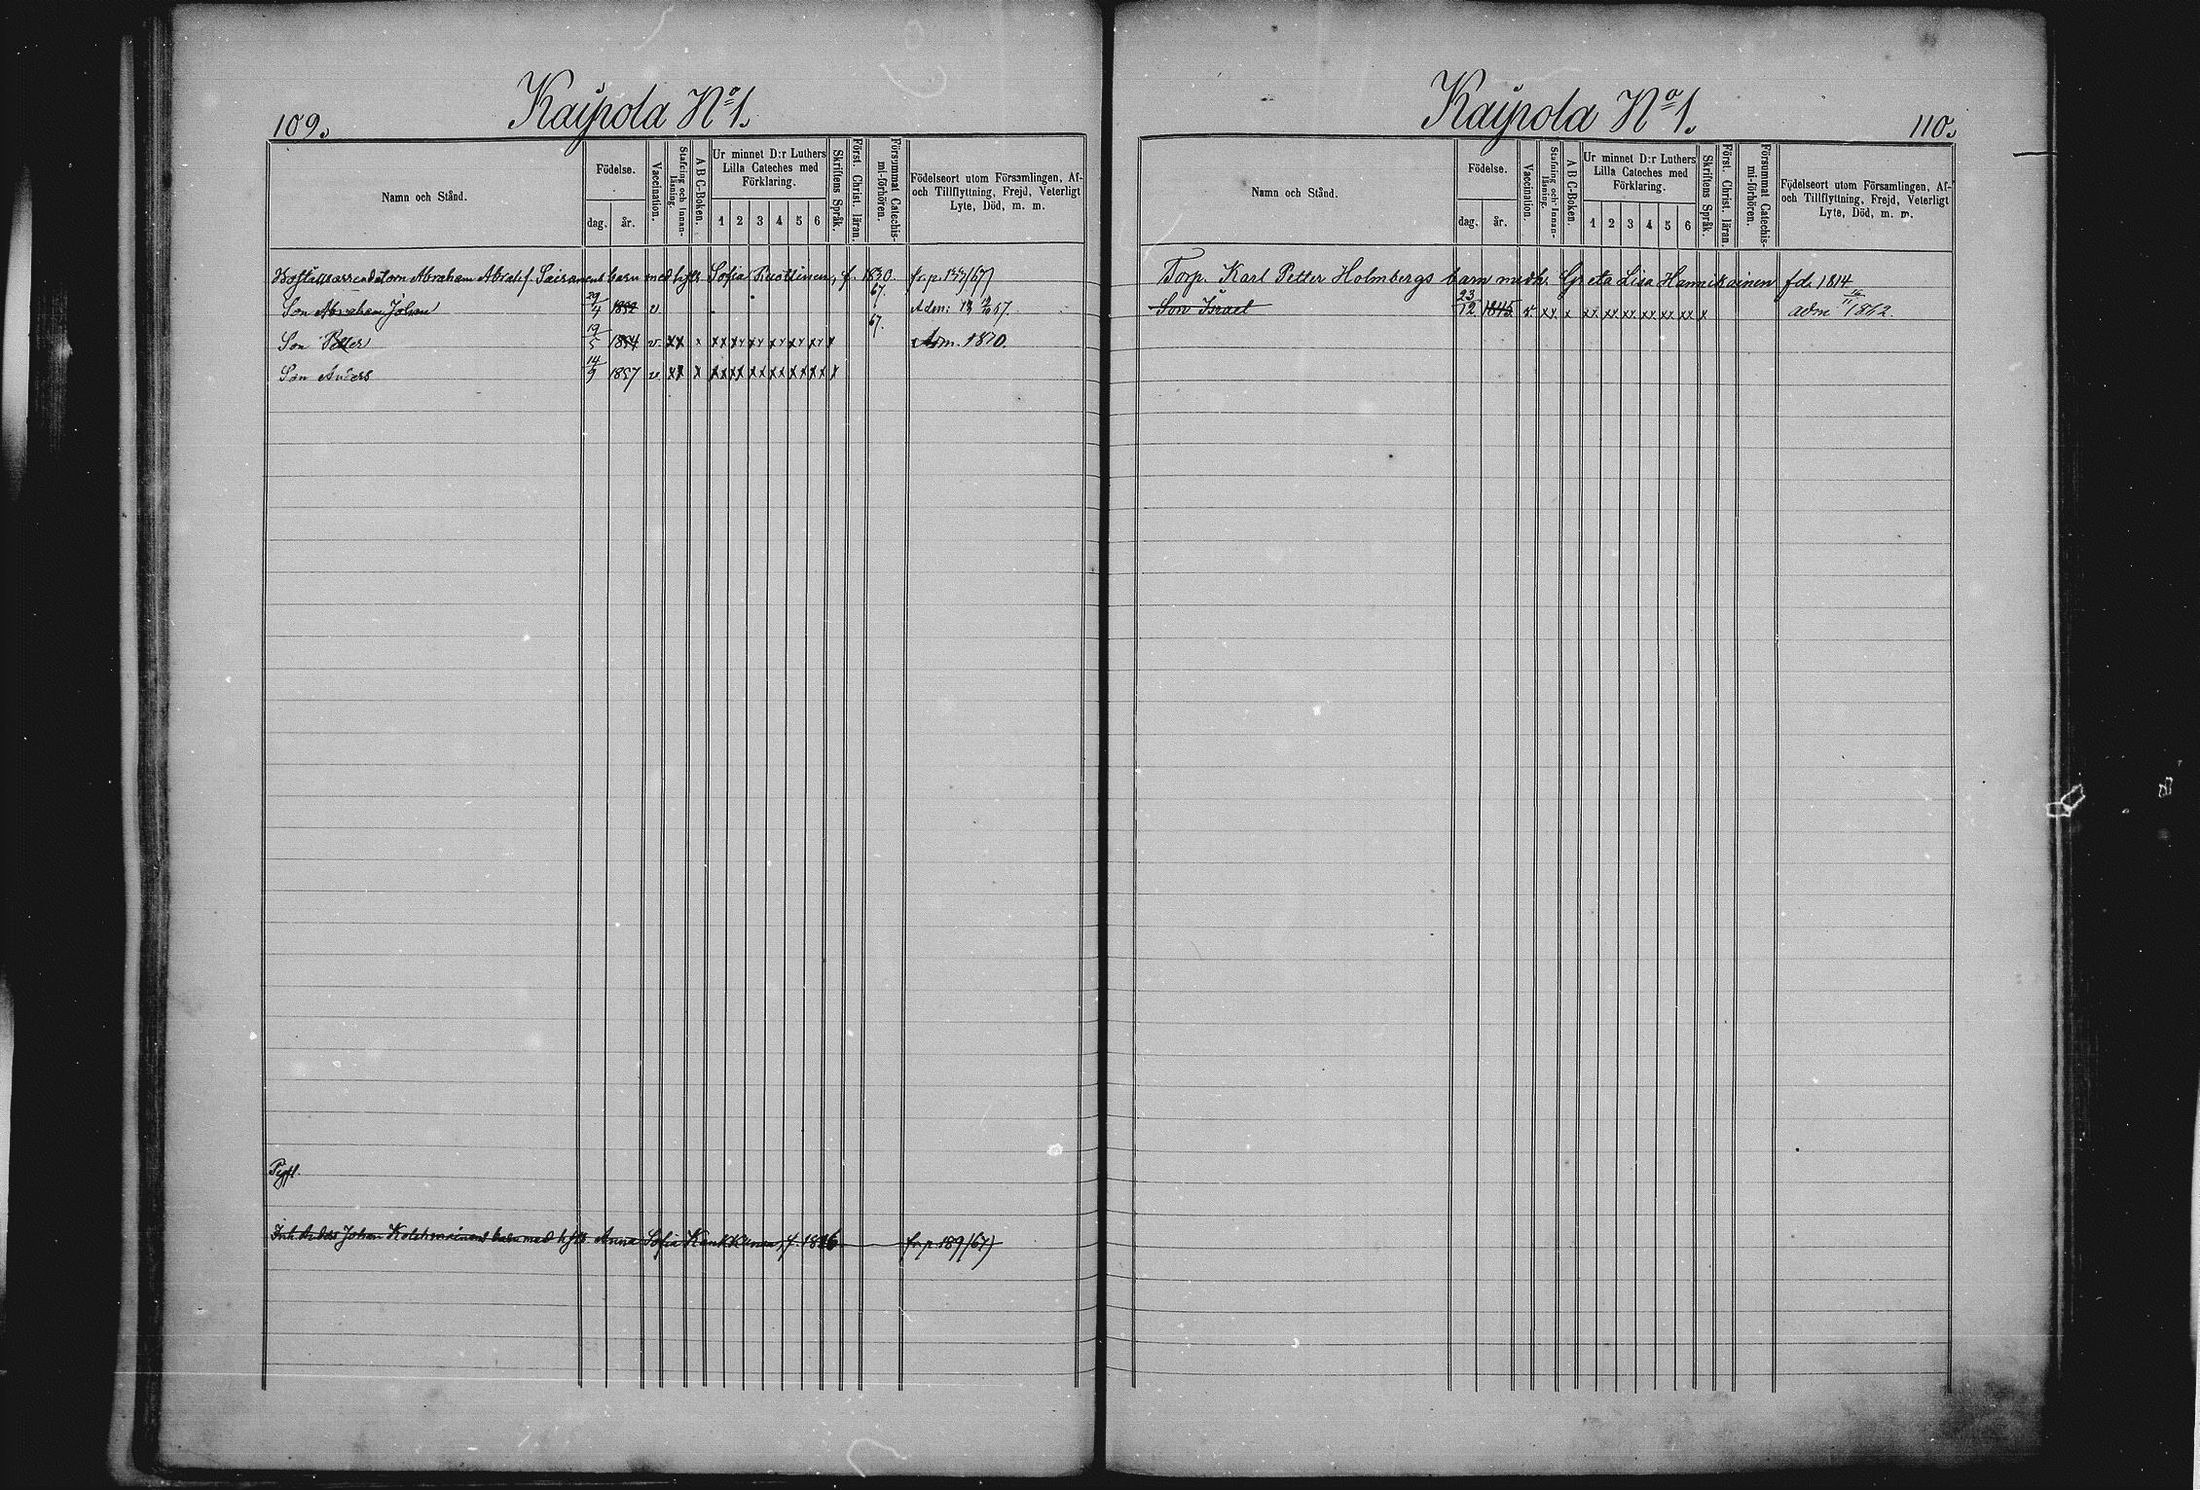 109.
Kaipola No 1.
Namn och Stånd.
Födelse.
dag.
år.
Vaccination.
Stafning och innanläsning.
A B C-Boken.
Ur minnet D:r Luthers Lilla Cateches med Förklaring.
1 2 3 4 5 6
Skriftens Språk.
Först. Christ. läran.
Försummat Catechismi-förhören.
Födelseort utom Församlingen, Af- och Tillflyttning, Frejd, Veterligt Lyte, Död, m. m.
Abraham Abrahsf. barn med hust. Sofia f. 1830. fr. p. 133/67)
Son Abraham Johan 29/4 1852 v. 67. Adm: 67.
Son Petter 19/5 1854 v. xx x xx xx xx xx xx xx x 67. Adm. 1870.
Son Anders 14/9 1857 v. xx x xx xx xx xx xx xx x
Johan barn med Anna Sofia f. 1826 fr. p. 189/67)
Kaipola No 1.
110.
Namn och Stånd.
Födelse.
dag.
år.
Vaccination.
Stafning och innanläsning.
A B C-Boken.
Ur minnet D:r Luthers Lilla Cateches med Förklaring.
1 2 3 4 5 6
Skriftens Språk.
Först. Christ. läran.
Försummat Catechismi-förhören.
Födelseort utom Församlingen, Af- och Tillflyttning, Frejd, Veterligt Lyte, Död, m. m.
Torp. Karl Petter Holmbergs barn med h. Greta Lisa Hannikainen fd. 1814
Son Israel 23/12 1845 v xx x xx xx xx xx xx xx x adm 1862.